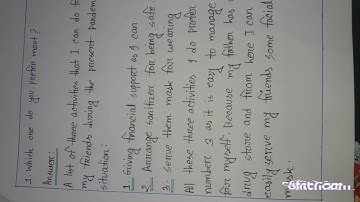 1. Which one do you prefer most?
Answer:
A list of three activities that I can do for
my friends during the present pandem
situation:
1. Giving financial support as I can
2. Arrange sanitizer for being safe
3. Serve them mask for wearing
All these three activities I do prefer
number 3 as it is easy to manage
for myself. Because my father has a
drug store and from here I can
easily serve my friends some facial
mask.